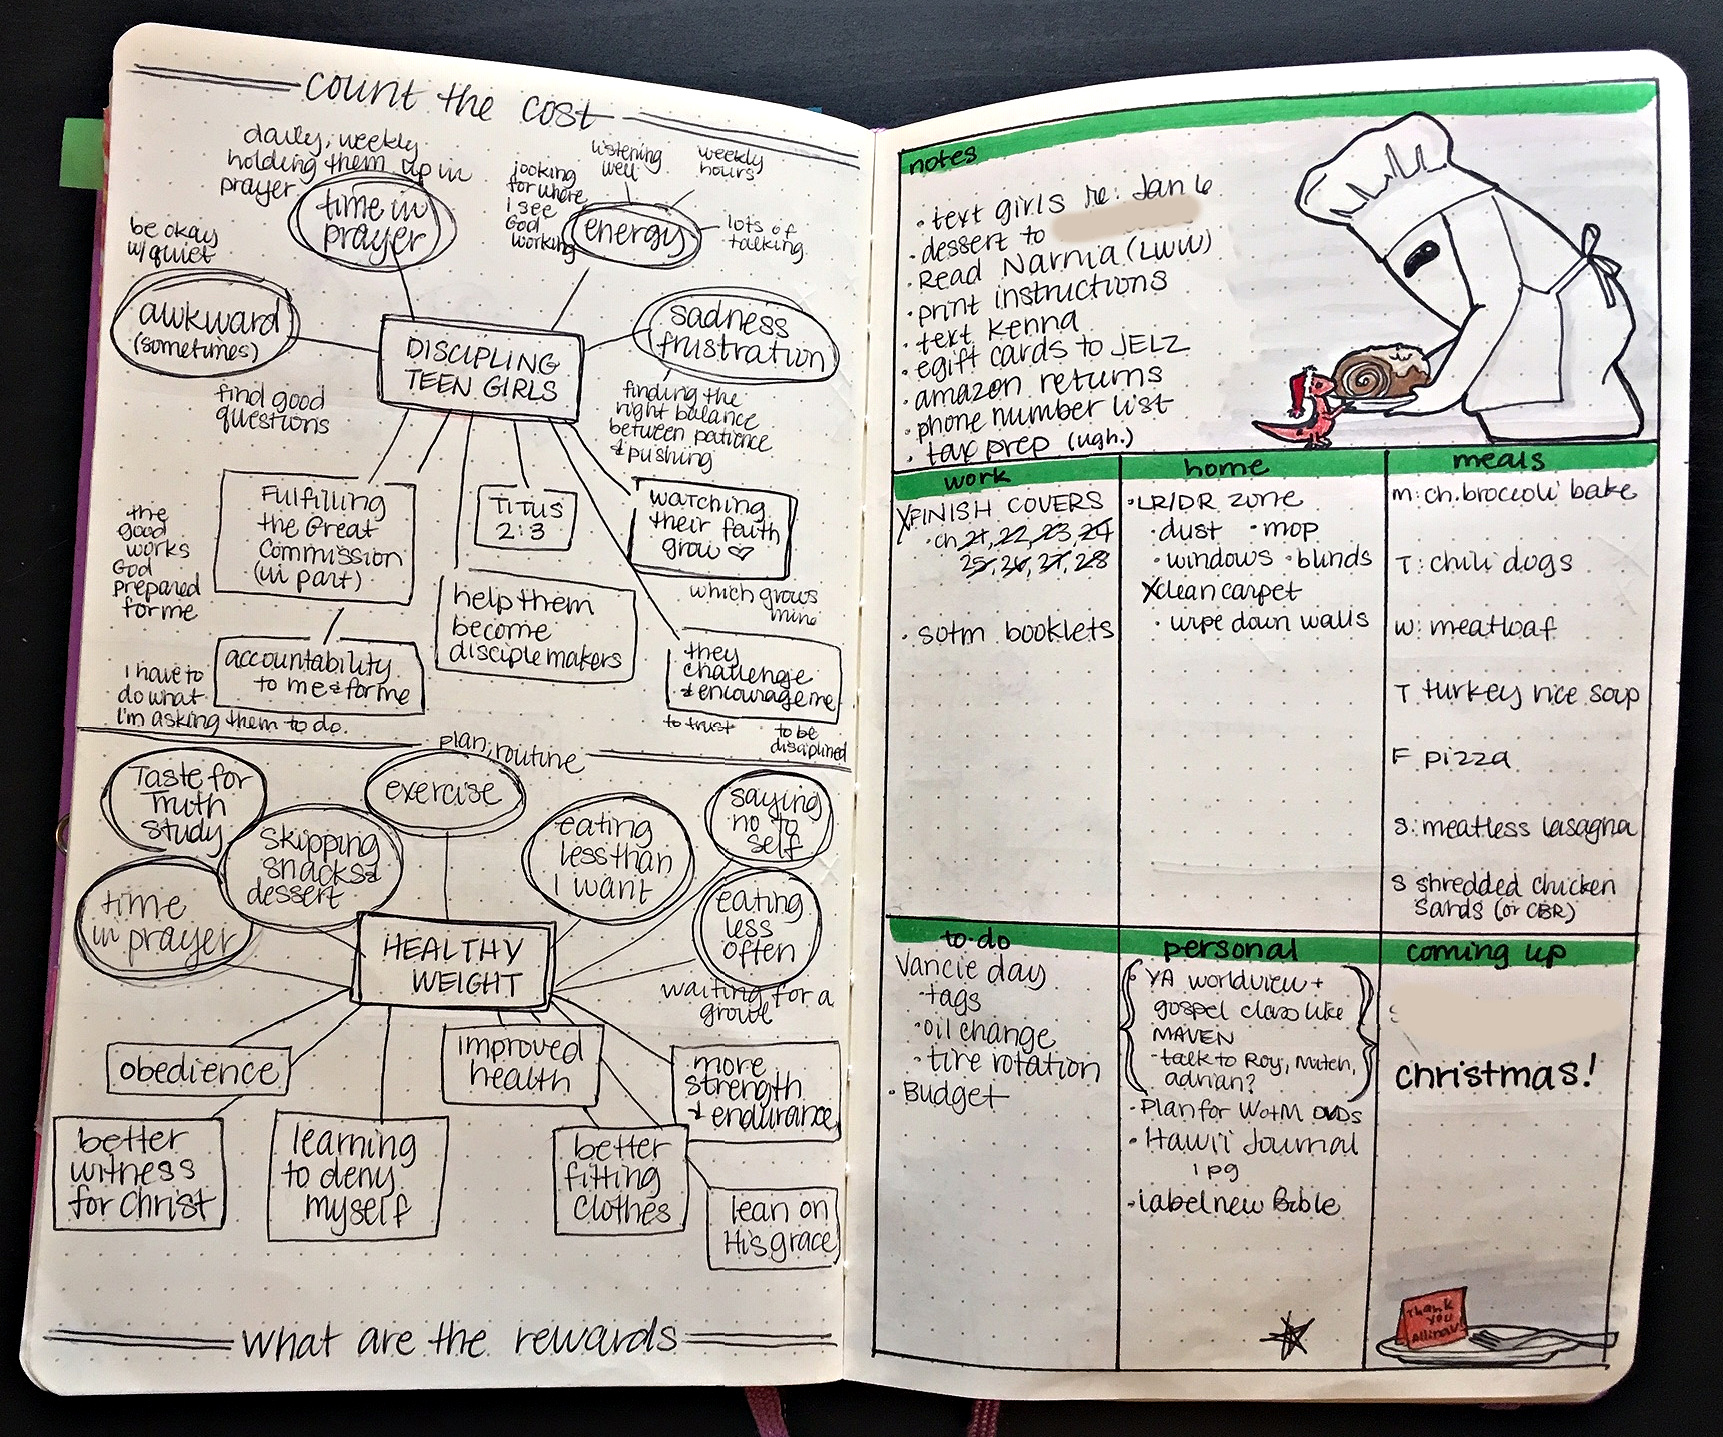 count the cost
daily, weekly
holding them up in
prayer
time in
prayer
looking
for where
I see
God
working
listening
well
weekly
hours
energy
lots of
talking
be okay
w/quiet
awkward
(sometimes)
find good
questions
DISCIPLING
TEEN GIRLS
sadness
frustration
finding the
right balance
between patience
& pushing
the
good
works
God
prepared
for me
Fulfilling
the Great
Commission
(in part)
TITUS
2:3
watching
their faith
grow ♡
which grows
mine
help them
become
disciplemakers
accountability
to me & for me
I have to
do what
I'm asking them to do.
they
challenge
& encourage me
to trust
to be
disciplined
plan, routine
Taste for
Truth
study
skipping
snacks &
dessert
exercise
eating
less than
I want
saying
no to
self
time
in prayer
eating
less
often
waiting for a
growl
HEALTHY
WEIGHT
obedience
improved
health
more
strength
& endurance
better
witness
for Christ
learning
to deny
myself
better
fitting
clothes
lean on
His grace
what are the rewards
notes
• text girls re: Jan 6
• dessert to
• Read Narnia (LWW)
• print instructions
• text Kenna
• egift cards to JELZ
• amazon returns
• phone number list
• tax prep (ugh.)
work
X FINISH COVERS
• ch 21, 22, 23, 24
25, 26, 27, 28
• SOTM booklets
home
• LR/DR zone
• dust • mop
• windows • blinds
X clean carpet
• wipe down walls
meals
M: ch. broccoli bake
T: chili dogs
W: meatloaf
T turkey rice soup
F pizza
S: meatless lasagna
S shredded chicken
sands (or CBR)
to do
Vancie day
• tags
• oil change
• tire rotation
• Budget
personal
• YA worldview +
gospel class like
MAVEN
- talk to Roy, Mitch,
adrian?
• Plan for WOTM DVDs
• Hawii Journal
1 pg
• label new Bible
coming up
christmas!
Thank
you